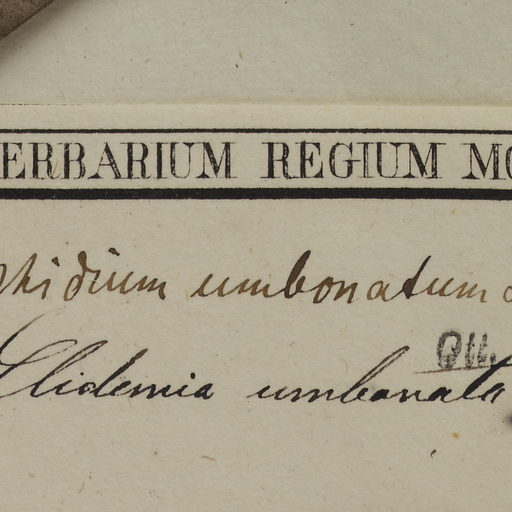 ERBARIUM REGIUM MO
umbonatum
Clidemia umbonata